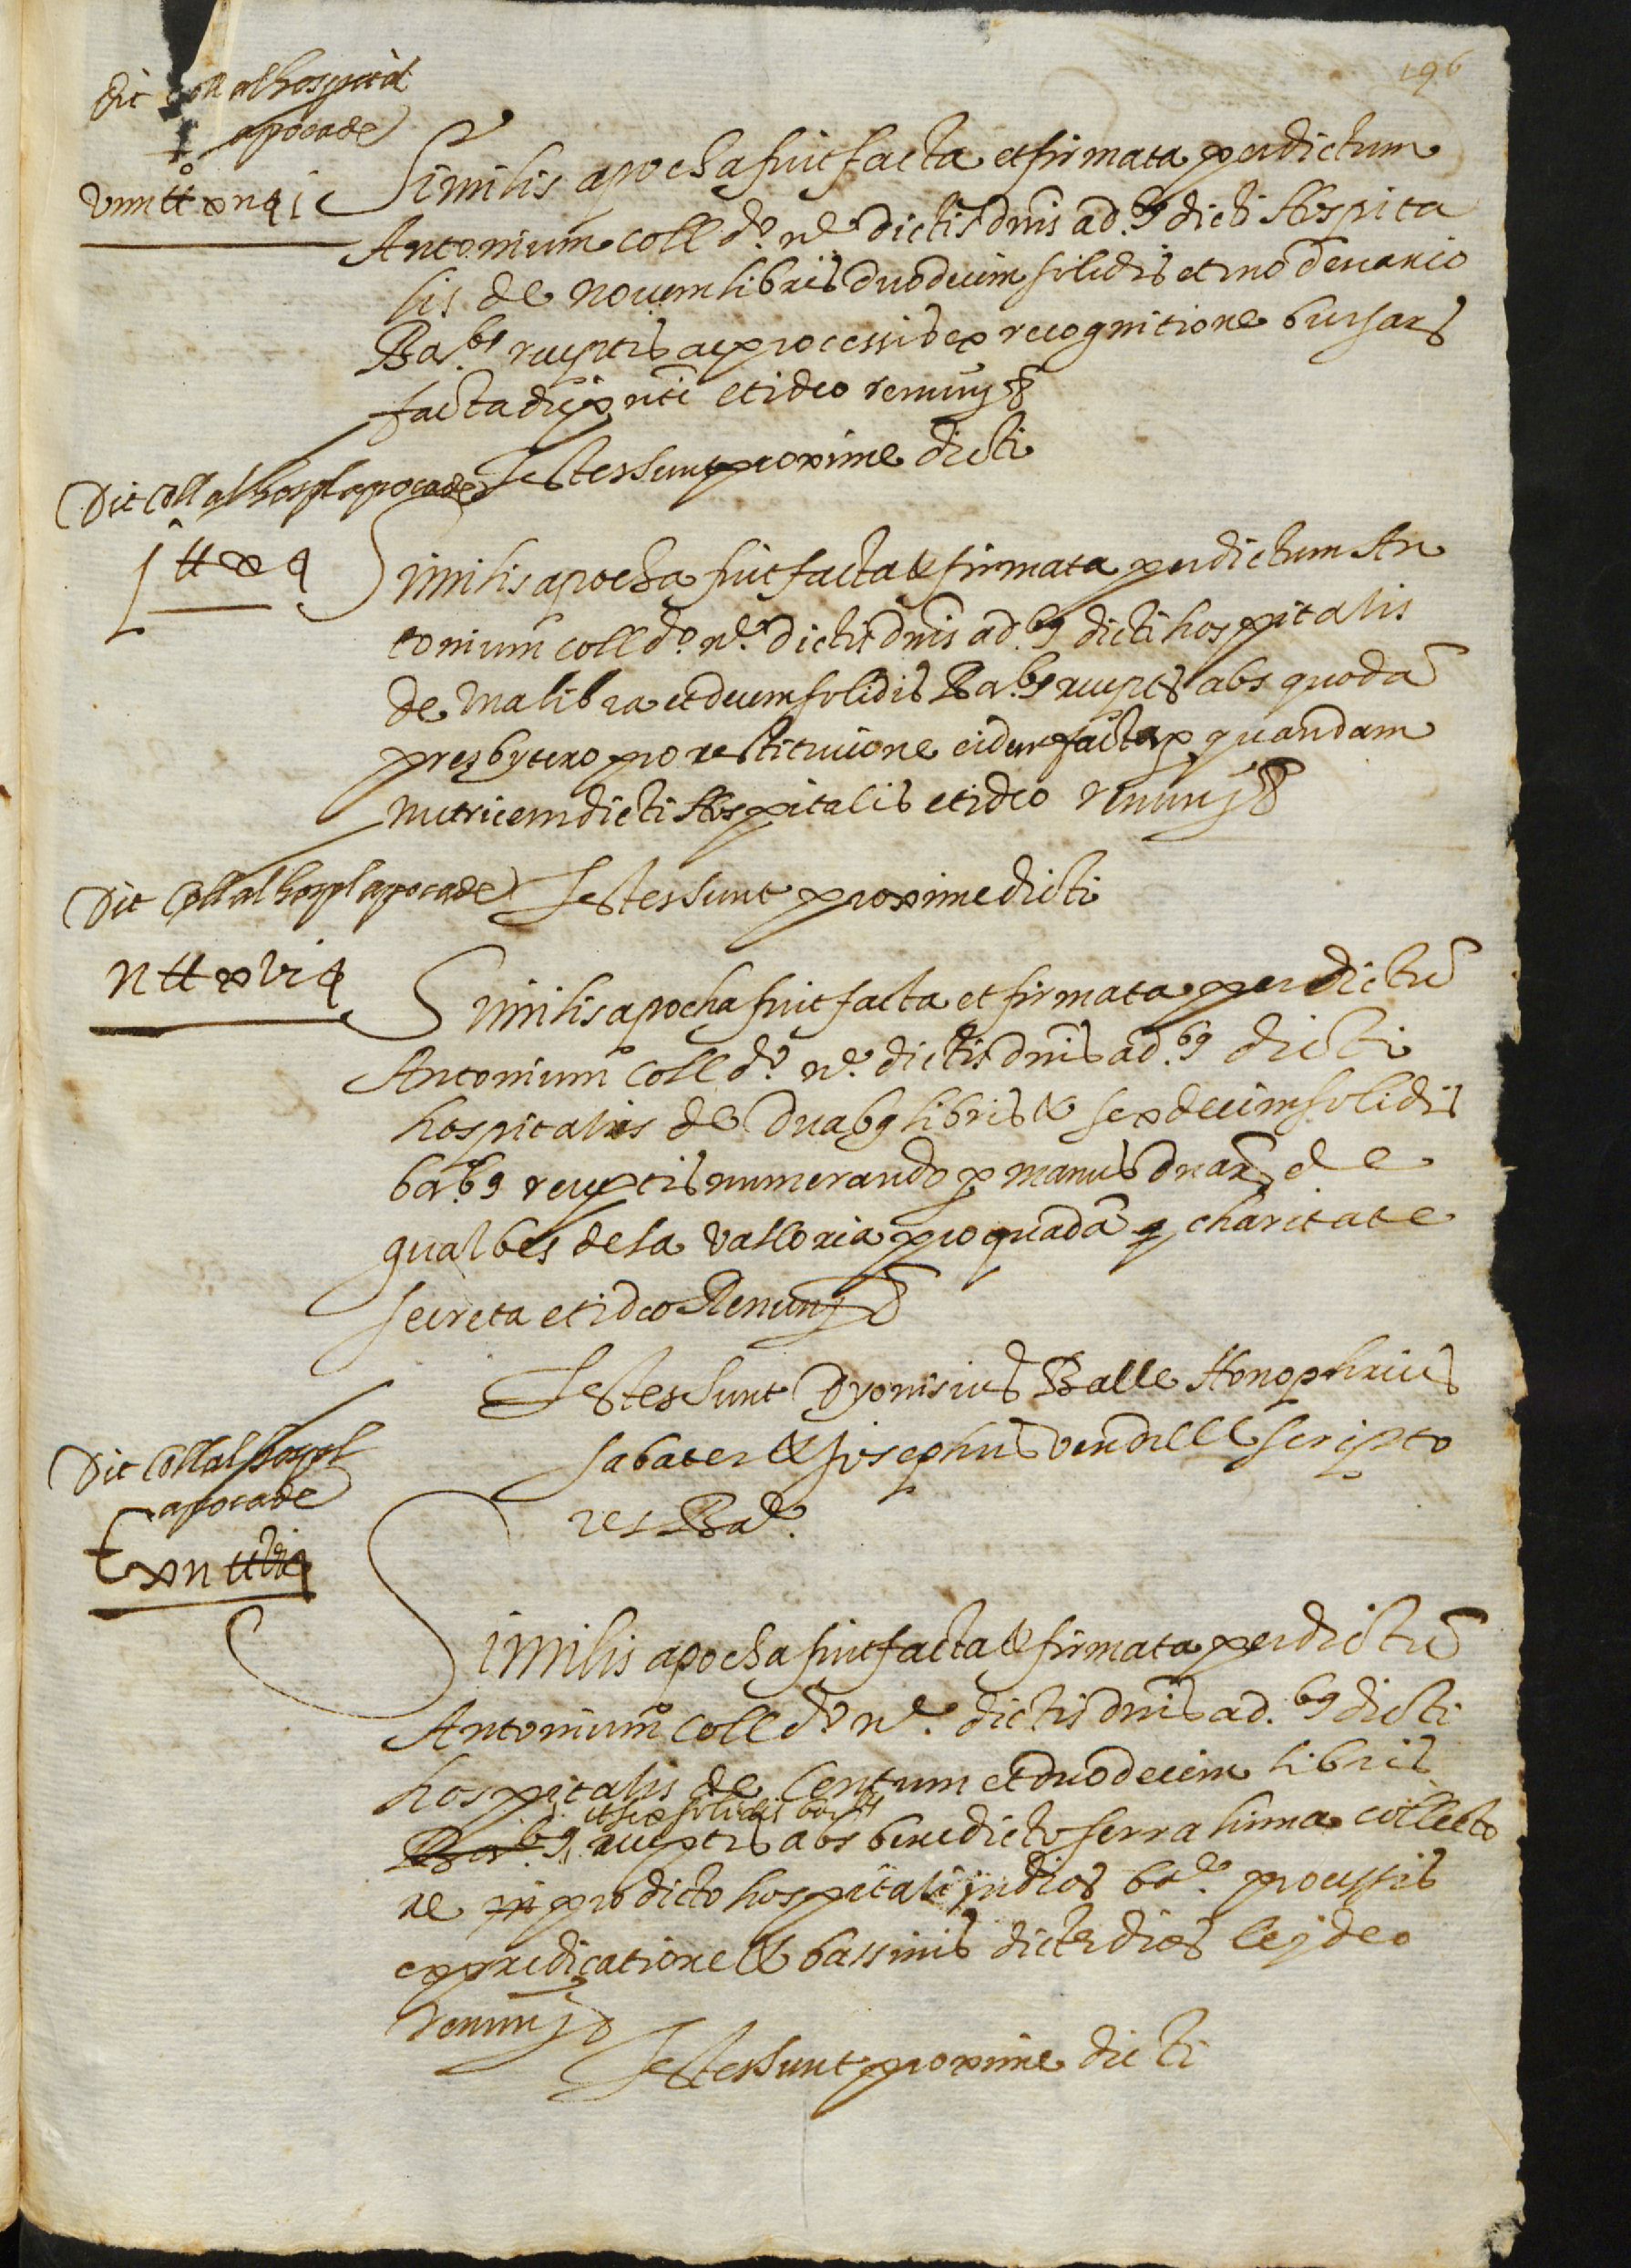 196
Dit Coll al hospital
apocade
viiii ℔ xii ș i
Similis apocha fuit facta et firmata per dictum
Antonium Coll d.º n.e dictis dnis ad.bs dicti Hospita
lis de novem libris duodecim solidis et uno denario
Ba.bs receptis ac processis ex recognitione bursars
facta die pnti et ideo renuns
Testes sunt proxime dicti
Dit Coll al hospl apocade
j ℔ x ș
Similis apocha fuit facta & firmata per dictum An
tonium Coll d.º n.e dictis dnis ad.bs dicti hospitalis
de una libra et decem solidis Ba.bs receptis abs quodā
presbytero pro restituione eidem facta p quandam
nutricem dicti Hospitalis et ideo renuns
Testes sunt proxime dicti
Dit Coll al hospl apocade
ii ℔ xvi ș
Similis apocha fuit facta et firmata per dictū
Antonium Coll d.º n.e dictis dnis ad.bs dicti
hospitalis de duabs libris & sexdecim solidis
ba.bs receptis numerando p manus dnæ de
gualbes de la valloria pro quadā charitate
secreta et ideo Renuns
Testes sunt Dyonisius Balle Honophrius
Sabater & Josephus vendrell scripto
res Ba.e
Dit Coll al hospl
apocade
Cxii ℔ vi ș
Similis apocha fuit facta & firmata per dictū
Antonium Coll d.º n.e dictis dnis ad.bs dicti
hospitalis de Centum et duodecim libris
et sex solidis ba.bs
Ba.bs receptis abs benedicto serra hima collecto
re in pro dicto hospitali in dios ba.e processis
ex predicatione & bassinis dicte dios & ideo
renuns
Testes sunt proxime dicti